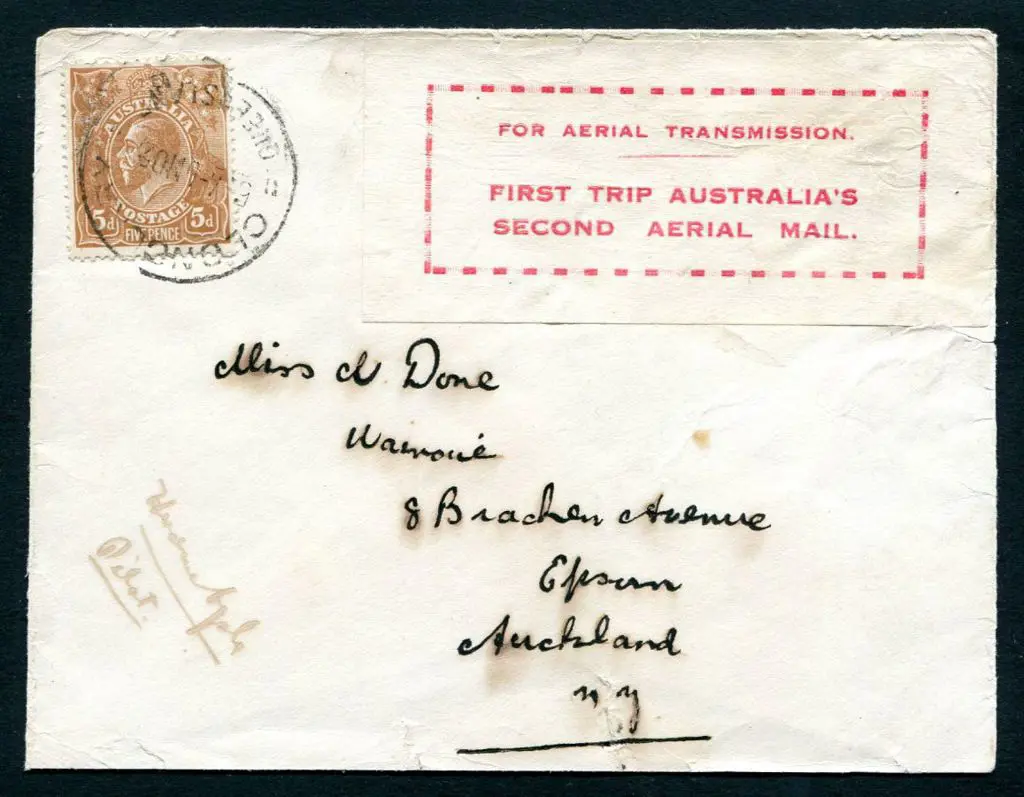 AUSTRALIA
POSTAGE
5d 5d
FIVE PENCE
QUEENSLAND
FOR AERIAL TRANSMISSION.
FIRST TRIP AUSTRALIA'S
SECOND AERIAL MAIL.
Miss N Done
8 Bracken Avenue
Epsom
Auckland
NZ
Pilot.